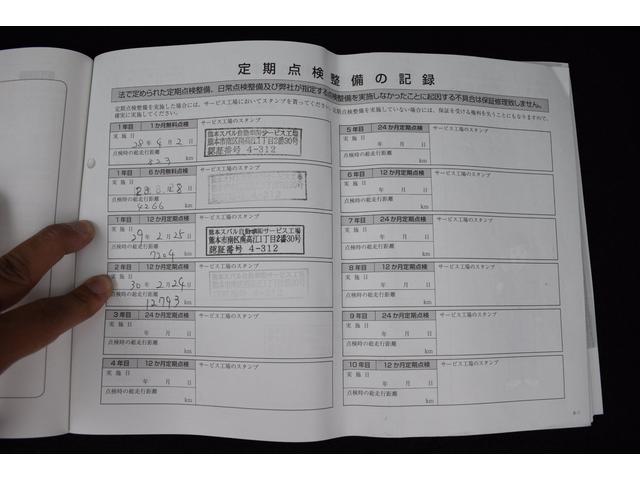 定期点検整備の記録
法で定められた定期点検整備、日常点検整備及び弊社が指定する点検整備を実施しなかったことに起因する不具合は保証修理致しません。
定期点検整備を実施した場合には、サービス工場においてスタンプを貰ってください。定期点検整備を実施していない場合には、保証を受ける権利を失うこともなりますので、
確実に実施してください。
1年目 1か月無料点検 サービス工場のスタンプ
実施日
28年4月2日
点検時の総走行距離
823 km
熊本スバル自動車㈱サービス工場
熊本市南区南高江1丁目2番30号
認証番号 4-312
1年目 6か月無料点検 サービス工場のスタンプ
実施日
28.8.28日
点検時の総走行距離
4266 km
1年目 12か月定期点検 サービス工場のスタンプ
実施日
29年2月25日
点検時の総走行距離
7204 km
熊本スバル自動車㈱サービス工場
熊本市南区南高江1丁目2番30号
認証番号 4-312
2年目 12か月定期点検 サービス工場のスタンプ
実施日
30年2月24日
点検時の総走行距離
12793 km
3年目 24か月定期点検 サービス工場のスタンプ
実施日
年 月 日
点検時の総走行距離
km
4年目 12か月定期点検 サービス工場のスタンプ
実施日
年 月 日
点検時の総走行距離
km
5年目 24か月定期点検 サービス工場のスタンプ
実施日
年 月 日
点検時の総走行距離
km
6年目 12か月定期点検 サービス工場のスタンプ
実施日
年 月 日
点検時の総走行距離
km
7年目 24か月定期点検 サービス工場のスタンプ
実施日
年 月 日
点検時の総走行距離
km
8年目 12か月定期点検 サービス工場のスタンプ
実施日
年 月 日
点検時の総走行距離
km
9年目 24か月定期点検 サービス工場のスタンプ
実施日
年 月 日
点検時の総走行距離
km
10年目 12か月定期点検 サービス工場のスタンプ
実施日
年 月 日
点検時の総走行距離
km